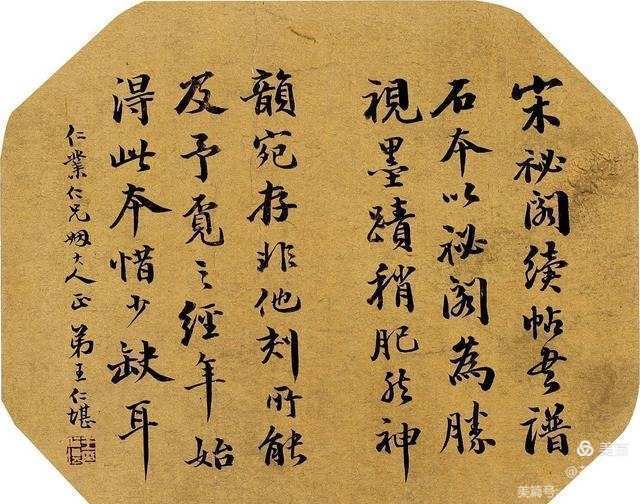 宋祕閣續帖書譜
石本以祕閣為勝
視墨蹟稍肥然神
韻宛存非他刻所能
及予覓之經年始
得此本惜少缺耳
仁業仁兄姻大人正 弟王仁堪
美篇
美篇号